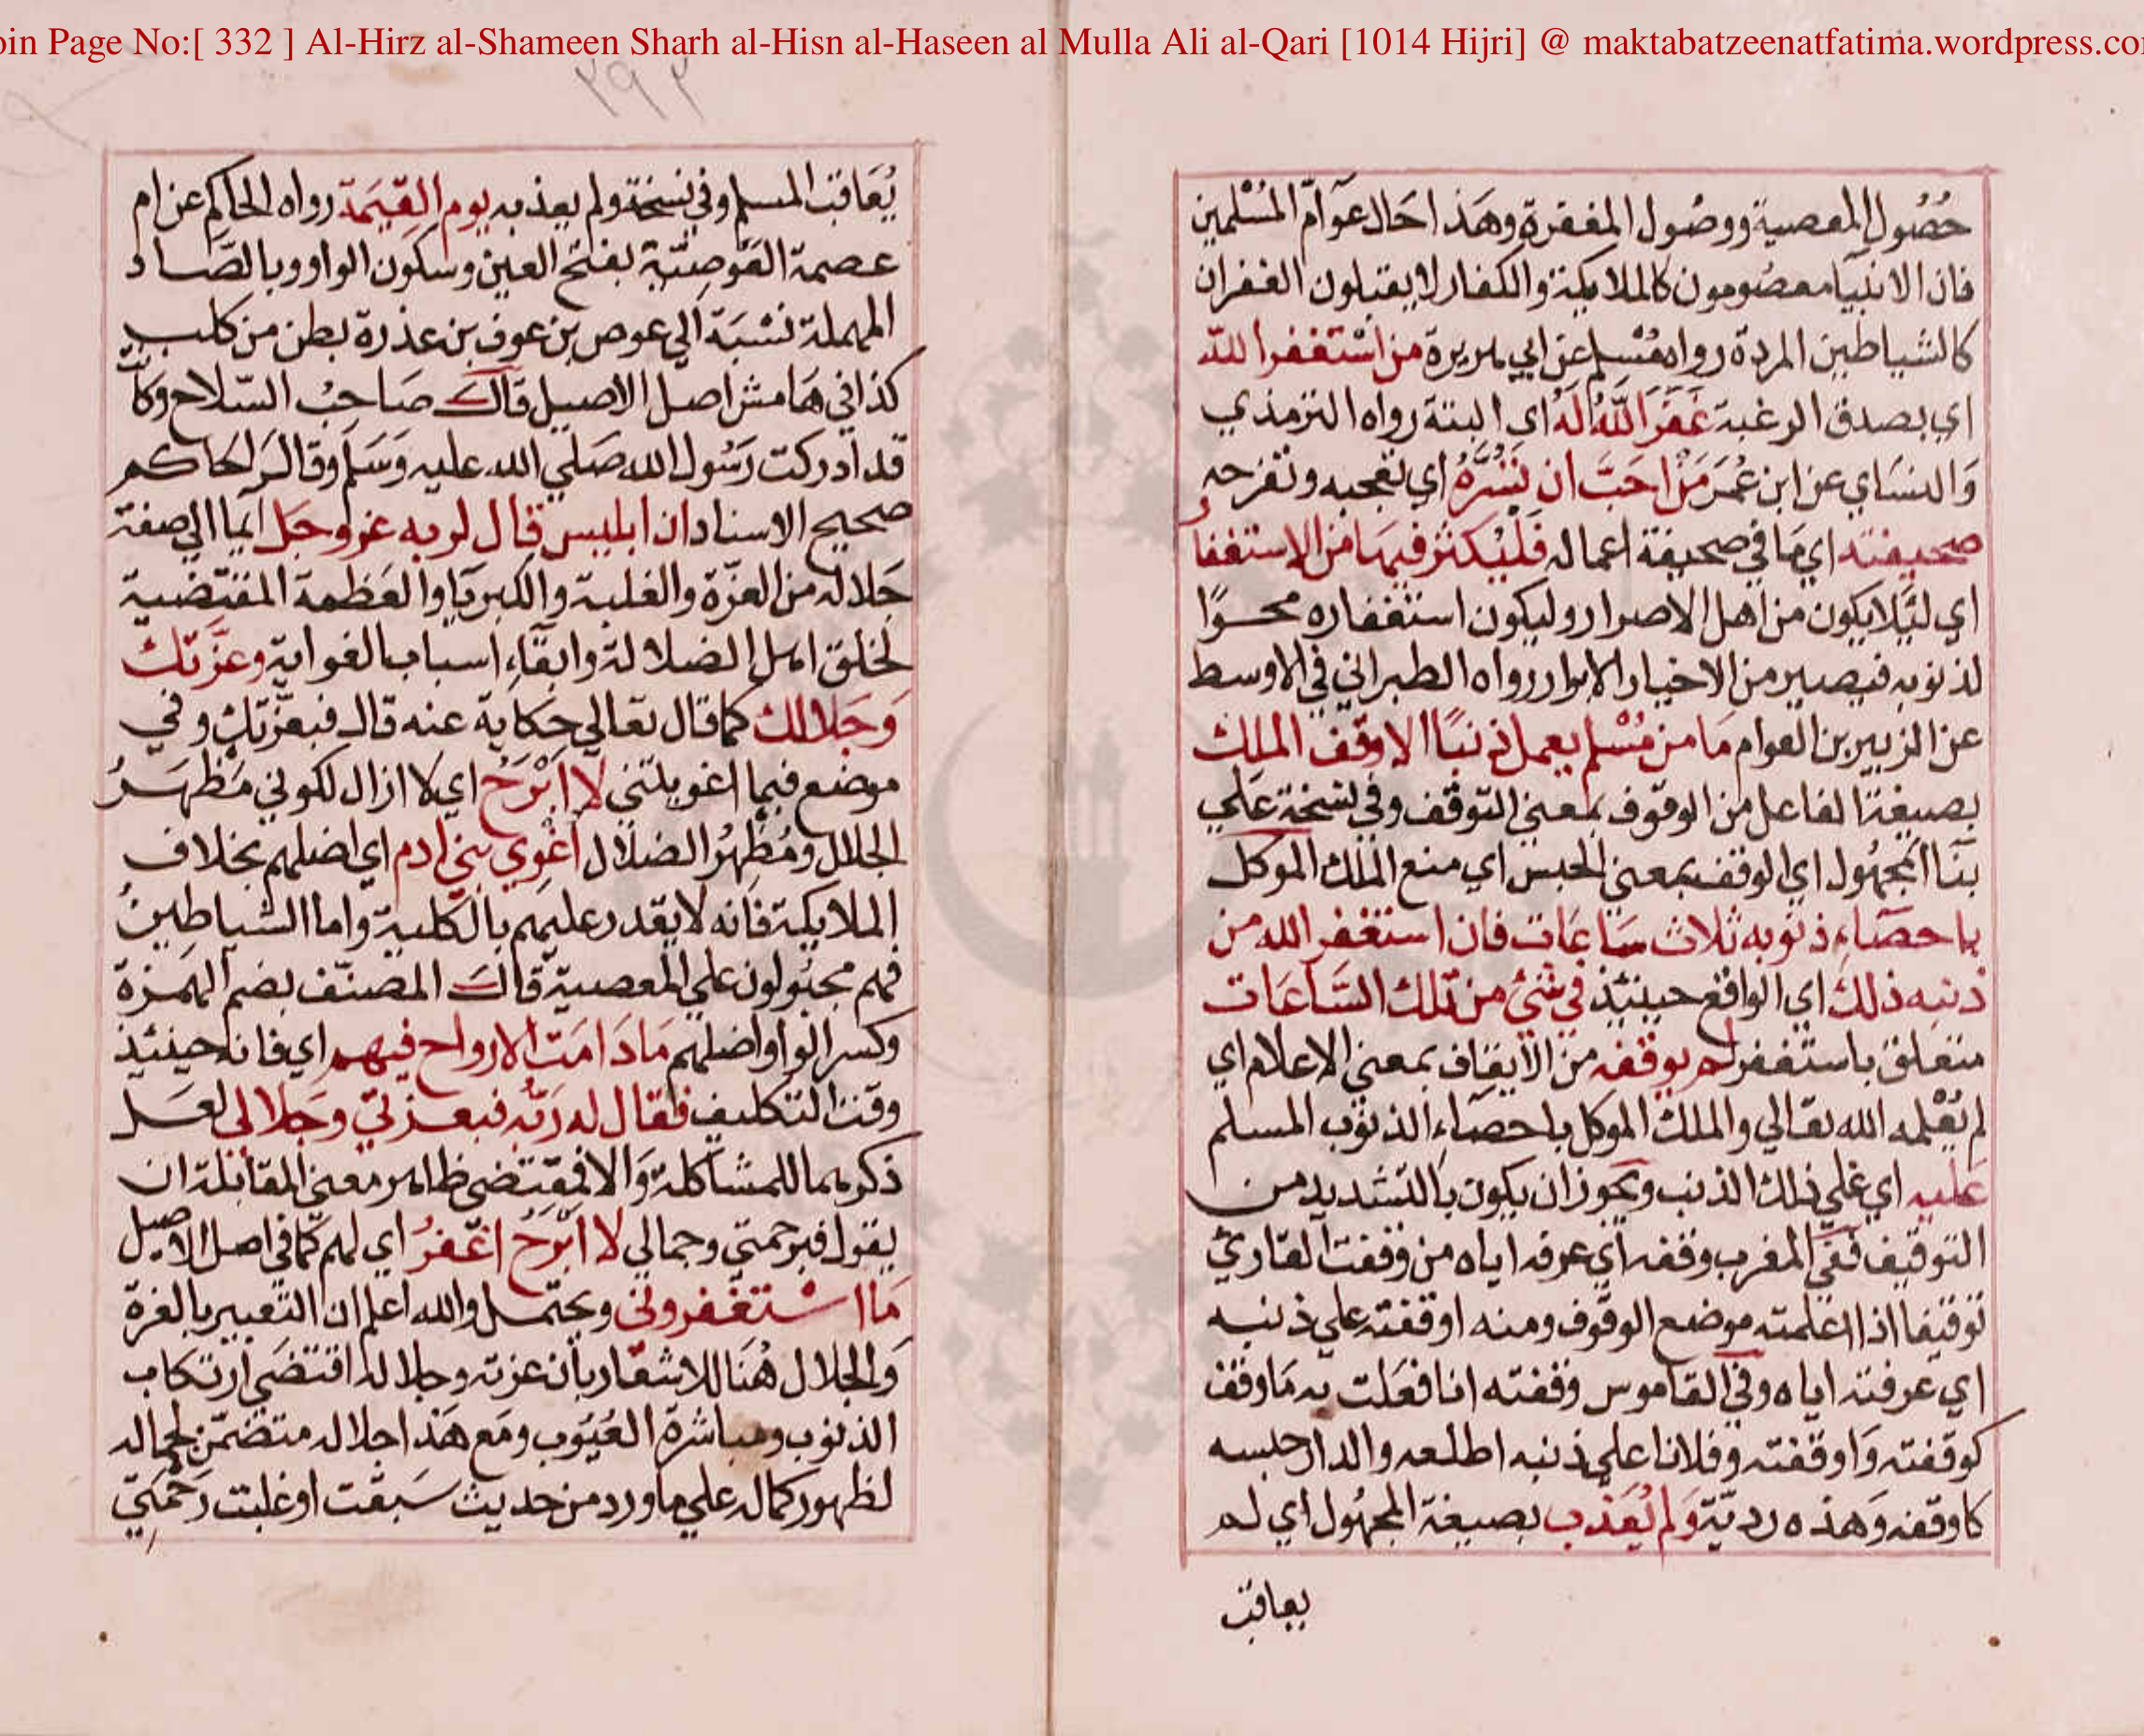 oin Page No:[ 332 ] Al-Hirz al-Shameen Sharh al-Hisn al-Haseen al Mulla Ali al-Qari [1014 Hijri] @ maktabatzeenatfatima.wordpress.co
٢٩٢
حُصُول المعصية ووصُول المغفرة وهَذا حَال عَوآمّ المُسْلمين
فان الانبيآ معصُومون كالملايكة والكفار لا يقبلون الغفران
كالشياطين المردة رواه مُسْلم عن ابي هريرة من اسْتغفر الله
اي بصدق الرغبة غَفَرَ اللّهُ لَهُ اي البتة رواه الترمذي
وَالنسَاي عن ابن عُمَرَ مَنْ احَبَّ ان تَسُرَّهُ اي تعجبه وتفرحه
صحيفته اي مَا في صحيفة اعماله فَلْيُكثر فيهَا من الاستغفار
اي لئِلا يكون من اهل الاصرار وليكون استغفاره محوًا
لذنوبه فيصير من الاخيار الابرار رواه الطبراني في الاوسط
عن الزبير بن العوام مَا من مُسْلم يعمل ذنبًا الا وقف الملك
بصيغة الفاعل من الوقوف بمعنى التوقف وفي نسخة عَلي
بنآ المجهُول اي الوقف بمعنى الحبس اي منع الملك الموكل
باحصَاءِ ذنوبه ثلاث سَاعَات فان استغفر الله من
ذنبه ذلك اي الواقع حينئذ في شئ من تلك السَّاعَات
متعلق باستغفر لم يوقفه من الايقاف بمعنى الاعلام اي
لم يُعْلمه الله تعَالي والملك الموكل باحصَاءِ الذنوب المسلم
عَليه اي عَلي ذلك الذنب ويجوز ان يكون بالتشديد من
التوقيف ففي المغرب وقفه اي عرفه اياه من وقفت القارئ
توقيفا اذا اعلمته موضع الوقوف ومنه اوقفته علي ذنبه
اي عرفته اياه وفي القاموس وقفته انا فعَلت به مَا وقف
كوقفته وَاوقفته وفلانا علي ذنبه اطلعه والدار حبسه
كاوقفه وَهذه رديّة وَلم يُعَذب بصيغة المجهُول اي لم
يعاقب
يُعَاقب المسلم وفي نسخة ولم يعذبه يوم القِيَمة رواه الحاكم عن ام
عصمة العَوصيّة بفتح العين وسكون الواو وبالصَّاد
المهملة نسْبَة الي عوص بن عوف بن عذرة بطن من كلب
كذا في هَامش اصل الاصيل قال صَاحبُ السّلاح وكانت
قد ادركت رَسُول الله صَلي الله عليه وَسَلم وقال الحَاكم
صحيح الاسناد ان ابليس قال لربه عز وجَل ايمآ الي صفة
جَلاله من العزّة والغلبة والكبريَا والعَظمة المقتضية
لخلق اهل الضلالة وابقَاءِ اسباب الغواية وعزّتك
وَجَلالك كما قال تعَالي حكاية عنه قال فبعزّتك وفي
موضع فبما اغويتني لا ابْرَحُ اي لا ازال لكوني مَظهَرُ
الجلال ومُظهرُ الضلال اغْوي بني ادم اي اضلهم بخلاف
الملايكة فانه لا يقدر عليهم بالكلية واما الشياطينُ
فهم مجبُولون علي المعصية قال المصنّف بضم الهَمزة
وكسر الواو اضلهم مَا دَامَت الارواح فيهم اي فانه حينئذ
وقت التكليف فقال له رَبّه فبعزتي وجَلالي لعَل
ذكرهما للمشاكلة وَالا فمقتضى ظاهر معنى المقابلة ان
يقول فبرحمتي وجمالي لا ابْرَحُ اغفرُ اي لهم كمَا في اصل الاصيل
مَا اسْتغفروني ويحتمل والله اعلم ان التعبير بالعزة
وَالجلال هُنَا للاشعَار بان عزته وجلاله اقتضى ارتكاب
الذنوب ومباشرة العُيُوب ومَع هَذا جلاله متضمّن لجماله
لظهور كماله علي ما ورد من حديث سَبقت او غلبت رَحْمَتي